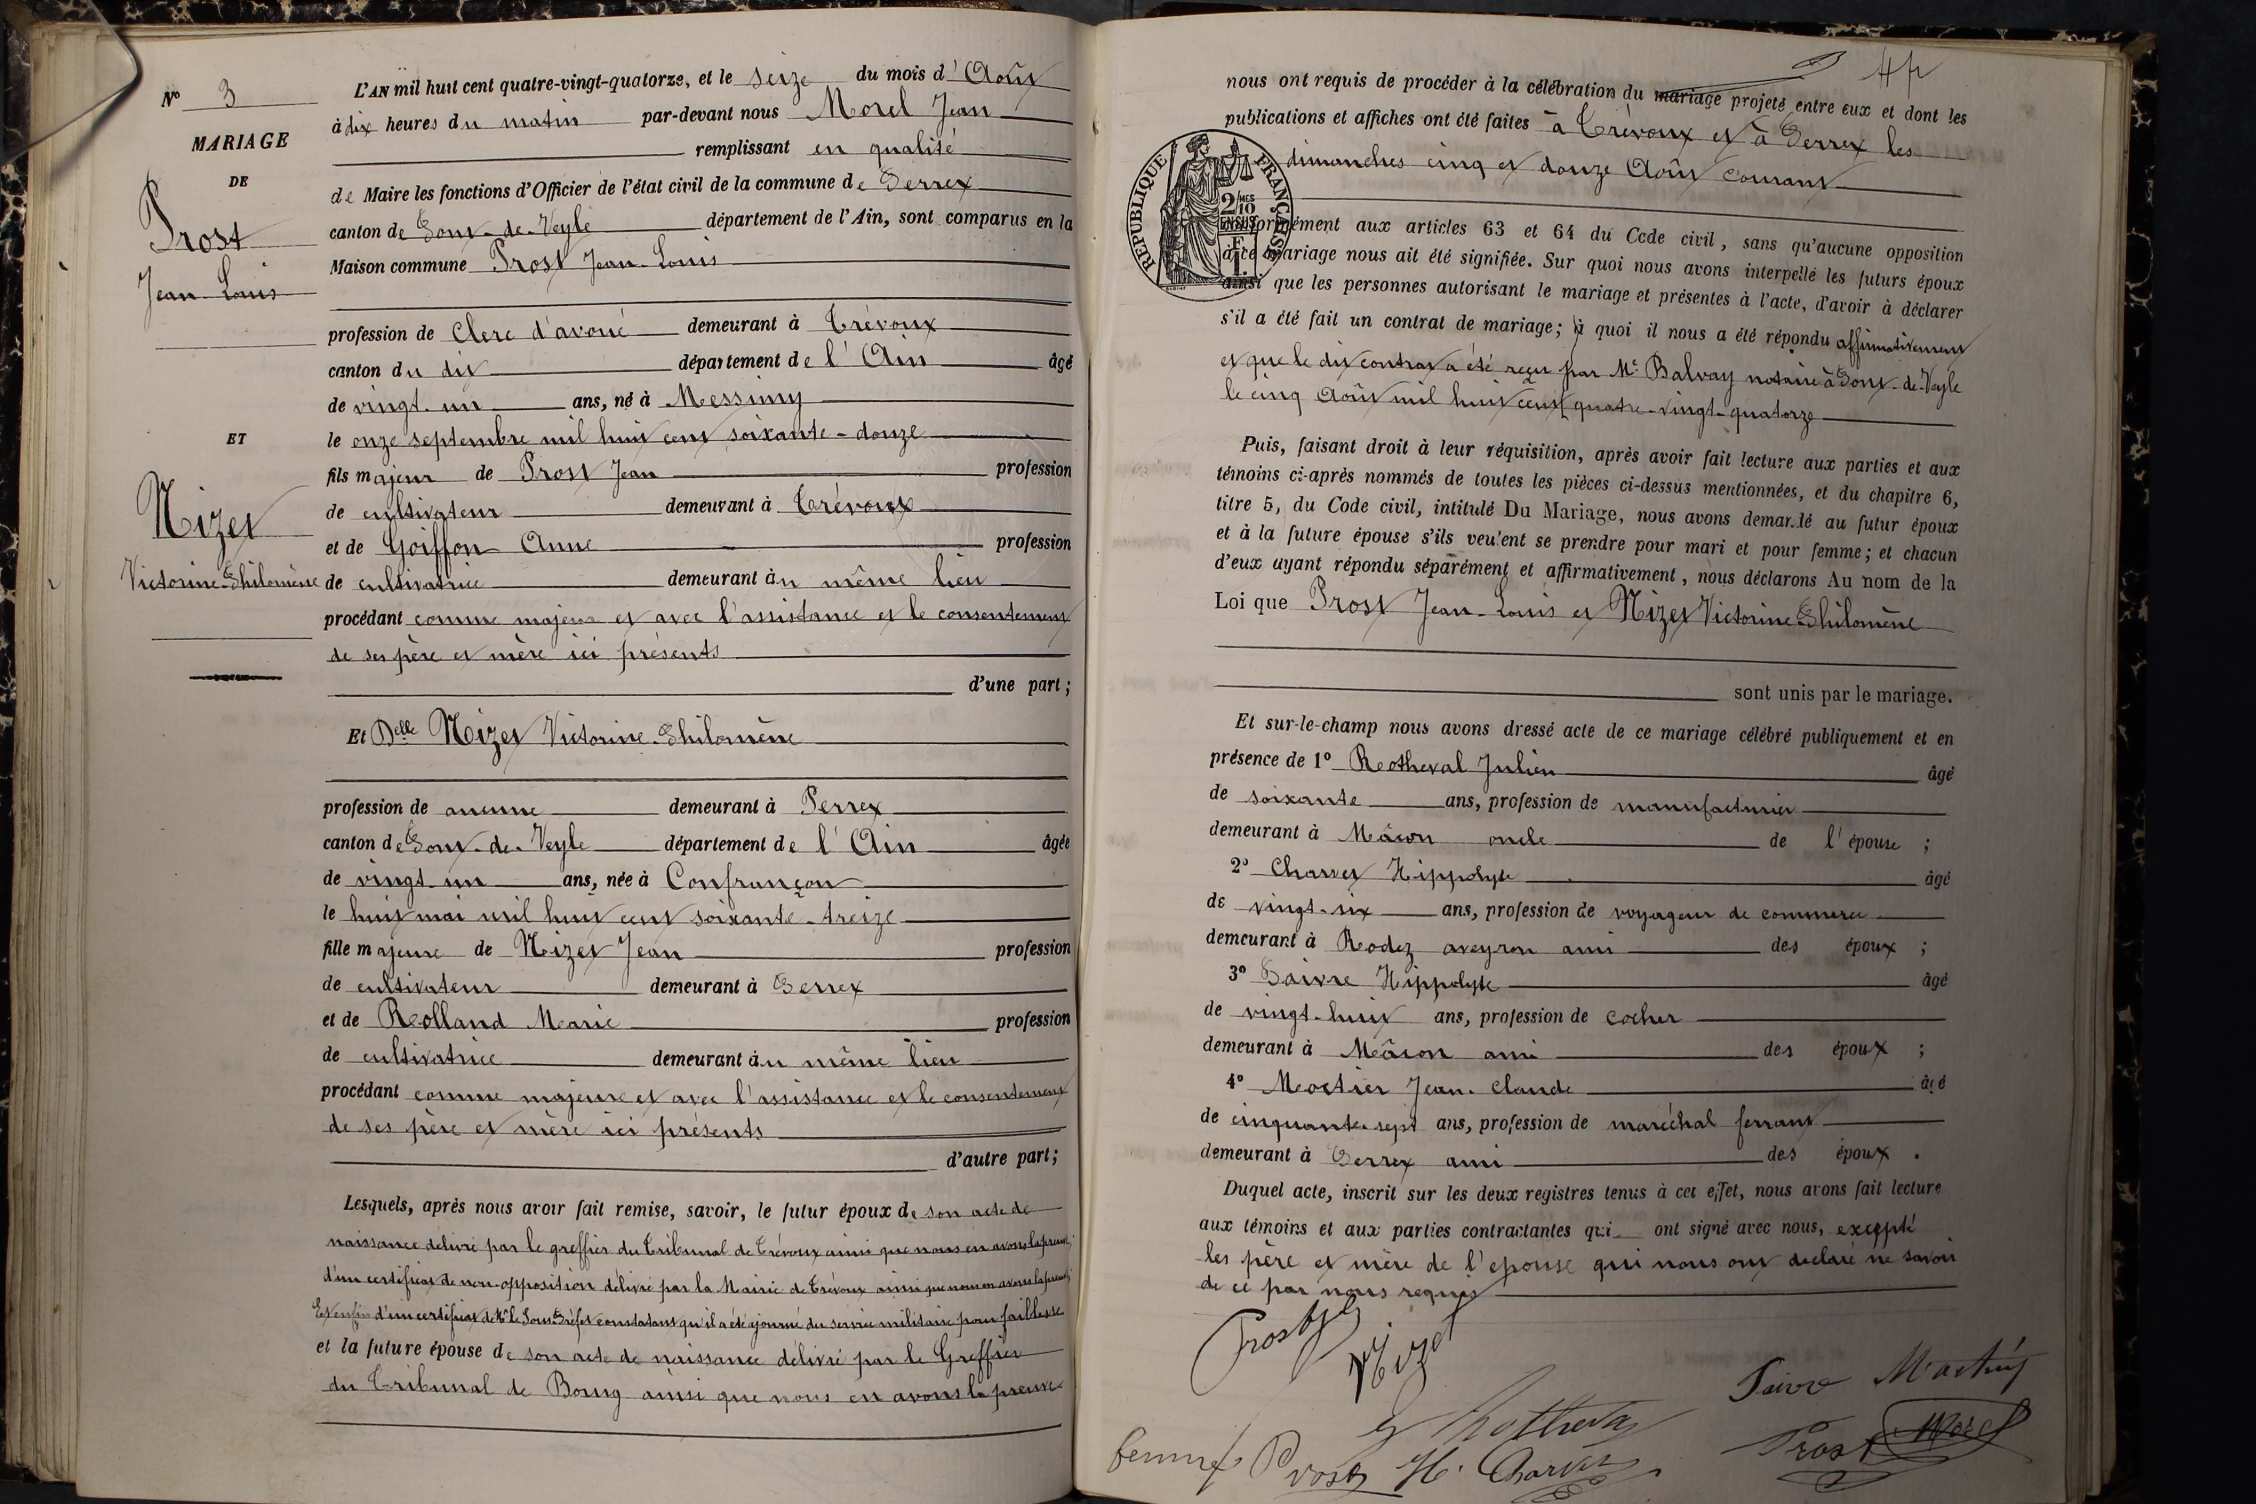 N° 3
MARIAGE
DE
Prost
Jean-Louis
ET
Nizet
Victorine-Philomène
L'AN mil huit cent quatre-vingt-quatorze, et le seize du mois d'Août
à dix heures du matin par-devant nous Morel Jean
remplissant en qualité
de Maire les fonctions d'Officier de l'état civil de la commune de Perrex
canton de Pont-de-Veyle département de l'Ain, sont comparus en la
Maison commune Prost Jean-Louis
profession de Clerc d'avoué demeurant à Trévoux
canton du dit département de l'Ain âgé
de vingt-un ans, né à Messimy
le onze septembre mil huit cent soixante-douze
fils majeur de Prost Jean profession
de cultivateur demeurant à Trévoux
et de Goiffon Anne profession
de cultivatrice demeurant àu même lieu
procédant comme majeur et avec l'assistance et le consentement
de ses père et mère ici présents
d'une part;
Et Delle Nizet Victorine-Philomène
profession de aucune demeurant à Perrex
canton de Pont-de-Veyle département de l'Ain âgée
de vingt-un ans, née à Confrançon
le huit mai mil huit cent soixante-treize
fille majeure de Nizet Jean profession
de cultivateur demeurant à Perrex
et de Rolland Marie profession
de cultivatrice demeurant àu même lieu
procédant comme majeure et avec l'assistance et le consentement
de ses père et mère ici présents
d'autre part;
Lesquels, après nous avoir fait remise, savoir, le futur époux de son acte de
naissance délivré par le greffier du Tribunal de Trévoux ainsi que nous en avons la preuve;
d'un certificat de non-opposition délivré par la Mairie de Trévoux ainsi que nous en avons la preuve;
Et enfin d'un certificat de Mr le Sous-Préfet constatant qu'il a été ajourné du service militaire pour faiblesse
et la future épouse de son acte de naissance délivré par le Greffier
du Tribunal de Bourg ainsi que nous en avons la preuve
nous ont requis de procéder à la célébration du mariage projeté entre eux et dont les
publications et affiches ont été faites à Trévoux et à Perrex les
dimanches cinq et douze Août courant
RÉPUBLIQUE FRANÇAISE
2/10 MES
EN SUS
conformément aux articles 63 et 64 du Code civil, sans qu'aucune opposition
à ce mariage nous ait été signifiée. Sur quoi nous avons interpellé les futurs époux
ainsi que les personnes autorisant le mariage et présentes à l'acte, d'avoir à déclarer
s'il a été fait un contrat de mariage; à quoi il nous a été répondu affirmativement
et que le dit contrat a été reçu par Me Balvay notaire à Pont-de-Veyle
le cinq Août mil huit cent quatre-vingt-quatorze
Puis, faisant droit à leur réquisition, après avoir fait lecture aux parties et aux
témoins ci-après nommés de toutes les pièces ci-dessus mentionnées, et du chapitre 6,
titre 5, du Code civil, intitulé Du Mariage, nous avons demandé au futur époux
et à la future épouse s'ils veulent se prendre pour mari et pour femme; et chacun
d'eux ayant répondu séparément et affirmativement, nous déclarons Au nom de la
Loi que Prost Jean-Louis et Nizet Victorine-Philomène
sont unis par le mariage.
Et sur-le-champ nous avons dressé acte de ce mariage célébré publiquement et en
présence de 1° Rotheval Julien âgé
de soixante ans, profession de manufacturier
demeurant à Mâcon oncle de l'épouse ;
2° Charvet Hippolyte âgé
de vingt-six ans, profession de voyageur de commerce
demeurant à Rodez aveyron ami des époux ;
3° Paivre Hippolyte âgé
de vingt-huit ans, profession de cocher
demeurant à Mâcon ami des époux ;
4° Moctier Jean-Claude âgé
de cinquante-sept ans, profession de maréchal ferrant
demeurant à Perrex ami des époux .
Duquel acte, inscrit sur les deux registres tenus à cet effet, nous avons fait lecture
aux témoins et aux parties contractantes qui ont signé avec nous, excepté
les père et mère de l'épouse qui nous ont déclaré ne savoir
de ce par nous requis
Prost
Nizet
Rotheval
Paivre
femme Prost
H. Charvet
Prost
Morel